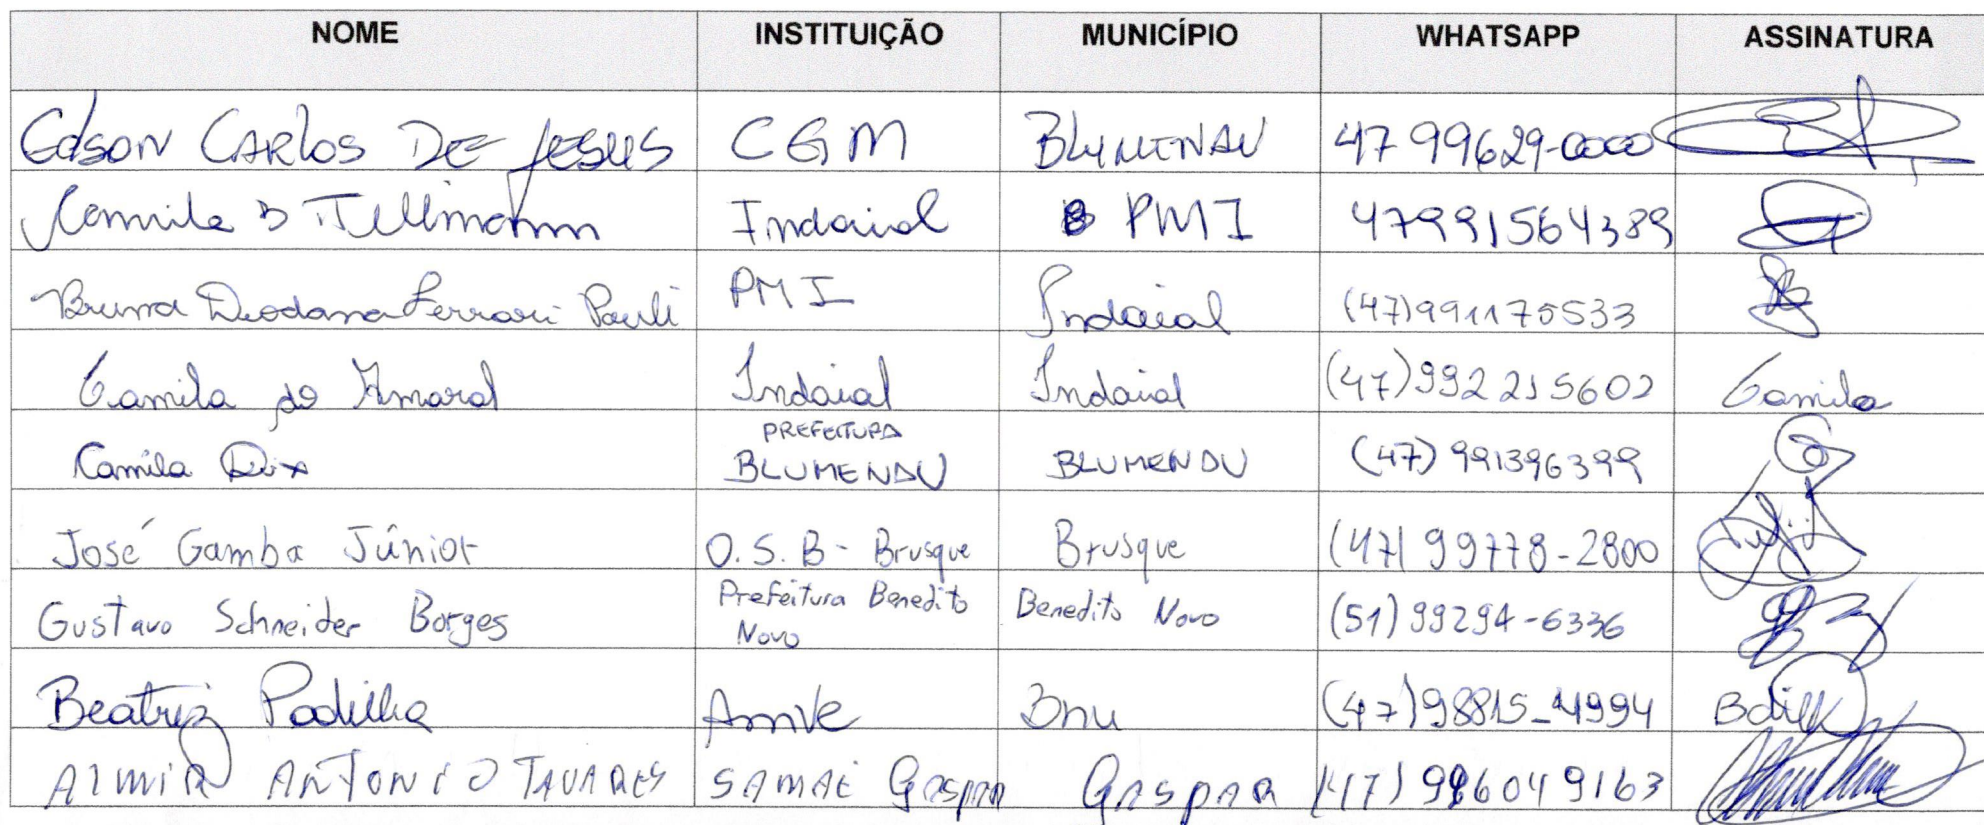 NOME INSTITUIÇÃO MUNICÍPIO WHATSAPP ASSINATURA
Edson CARLOS DE JESUS CGM BLUMENAU 47 99629-0000
Camila B Tellmann Indaial PMI 47991564389
Bruna Deodana Ferrari Pauli PMI Indaial (47)991175533
Camila do Amaral Indaial Indaial (47)992215602 Camila
PREFEITURA
Camila BLUMENAU BLUMENAU (47) 991396399
José Gamba Júnior O.S.B - Brusque Brusque (47) 99778-2800
Gustavo Schneider Borges Prefeitura Benedito Novo Benedito Novo (51) 99294-6336
Beatriz Padilha Amve Bnu (47)98815-4994
ALMIR ANTONIO TAVARES SAMAE Gaspar GASPAR (47)